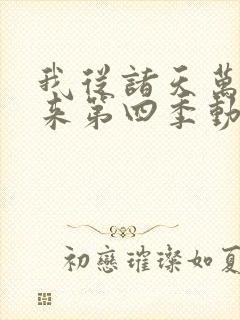 我從諸天萬
来第四季動
初戀璀璨如夏